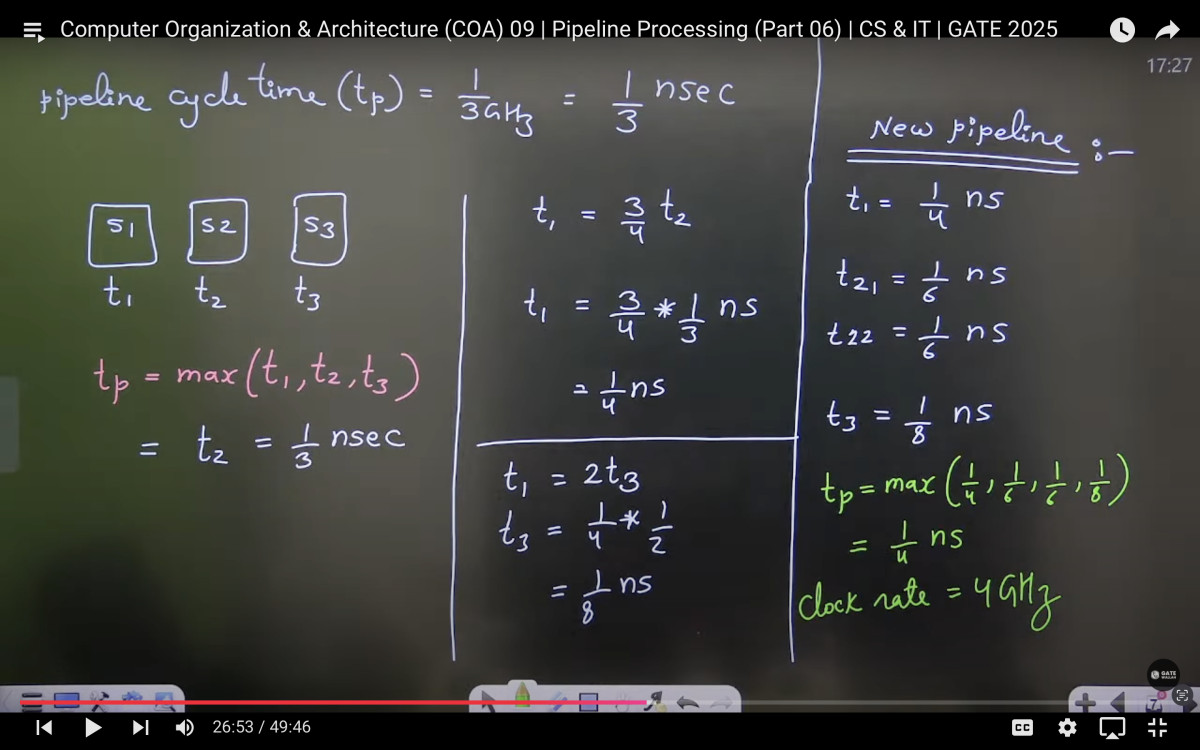 Computer Organization & Architecture (COA) 09 | Pipeline Processing (Part 06) | CS & IT | GATE 2025
17:27
pipeline cycle time (tp) = 1/3GHz = 1/3 nsec
S1 S2 S3
t1 t2 t3
tp = max(t1, t2, t3)
= t2 = 1/3 nsec
t1 = 3/4 t2
t1 = 3/4 * 1/3 ns
= 1/4 ns
t1 = 2t3
t3 = 1/4 * 1/2
= 1/8 ns
New pipeline :-
t1 = 1/4 ns
t21 = 1/6 ns
t22 = 1/6 ns
t3 = 1/8 ns
tp = max(1/4, 1/6, 1/6, 1/8)
= 1/4 ns
clock rate = 4 GHz
GATE
26:53 / 49:46
CC